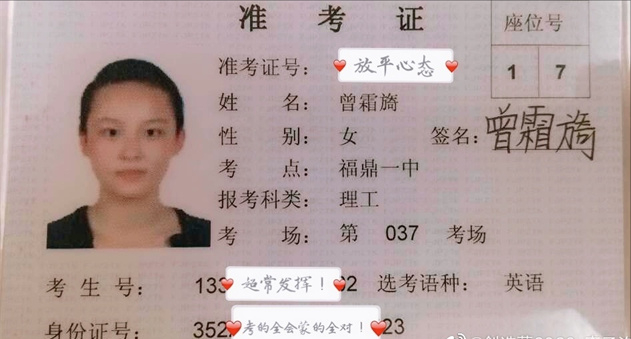 准考证
座位号
1 7
准考证号： 放平心态
姓 名： 曾霜旖
性 别： 女 签名： 曾霜旖
考 点： 福鼎一中
报考科类： 理工
考 场： 第 037 考场
考生号： 133 超常发挥！ 62 选考语种： 英语
身份证号： 352 考的全会蒙的全对！ 23